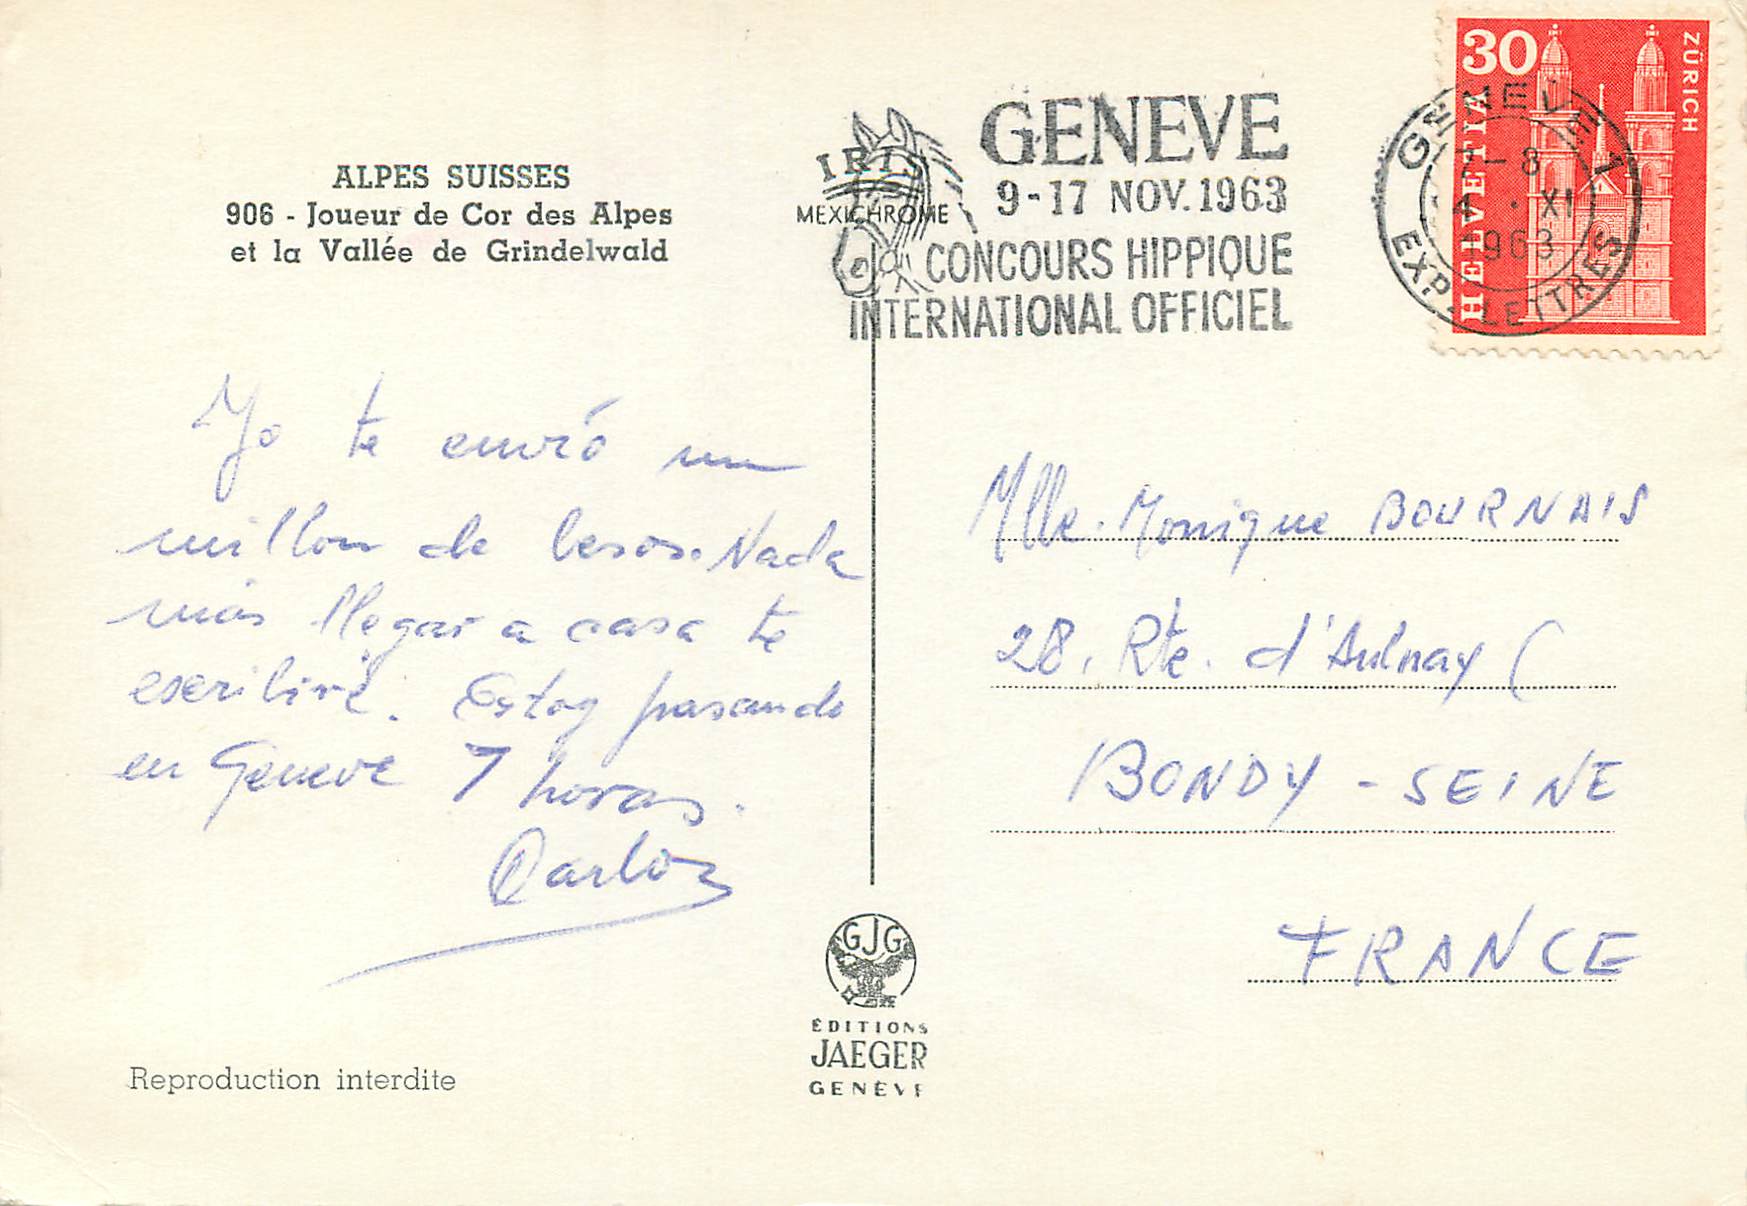 ALPES SUISSES
906 - Joueur de Cor des Alpes
et la Vallée de Grindelwald
IRIS
MEXICHROME
GENEVE
9-17 NOV. 1963
CONCOURS HIPPIQUE
INTERNATIONAL OFFICIEL
30
HELVETIA
ZÜRICH
GENEVE 1
-8
4 · XI
1963
EXP. LETTRES
Yo te envió un
millon de besos. Nada
más llegar a casa te
escribiré. Estoy pasando
en Geneve 7 horas.
Carlos
Mlle. Monique BOURNAIS
28, Rte. d'Aulnay (
BONDY - SEINE
FRANCE
GJG
ÉDITIONS
JAEGER
GENÈVE
Reproduction interdite